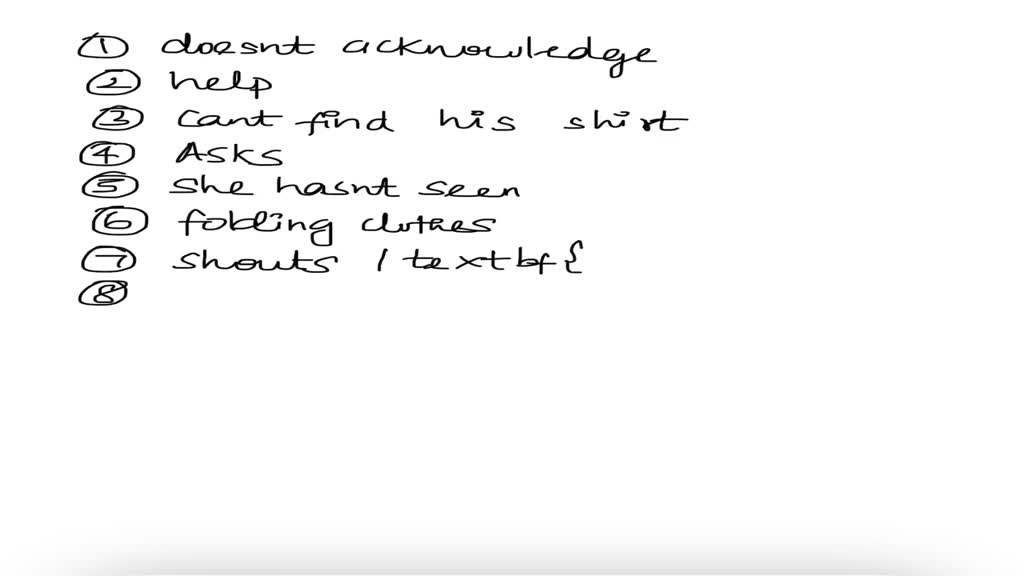 ① doesnt acknowledge
② help
③ cant find his shirt
④ Asks
⑤ she hasnt seen
⑥ folding clothes
⑦ shouts / textbf{
⑧